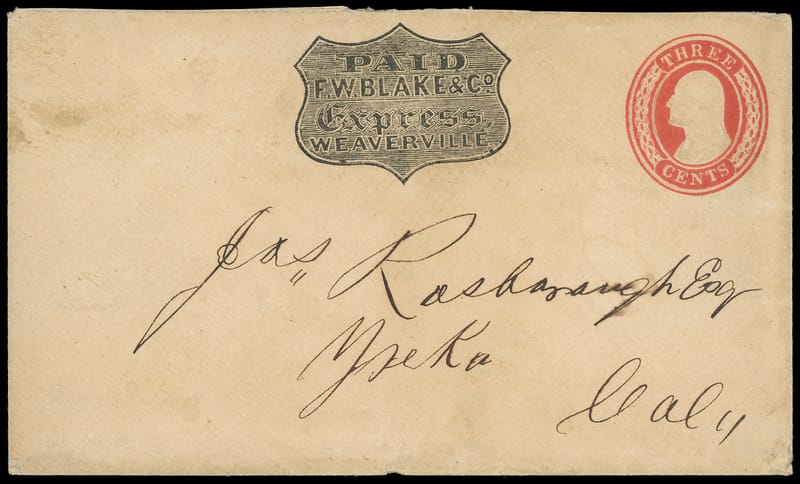 PAID
F.W.BLAKE & Co
Express,
WEAVERVILLE.
THREE
CENTS
Jas" Rosborough Esq
Yreka
Cal"